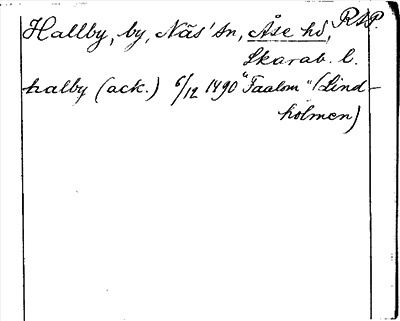 Hallby, by, Näs' sn, Åse hd, RAP.
Skarab. l.
halby (ack.) 6/12 1490 "Taalom" (Lind-
holmen)